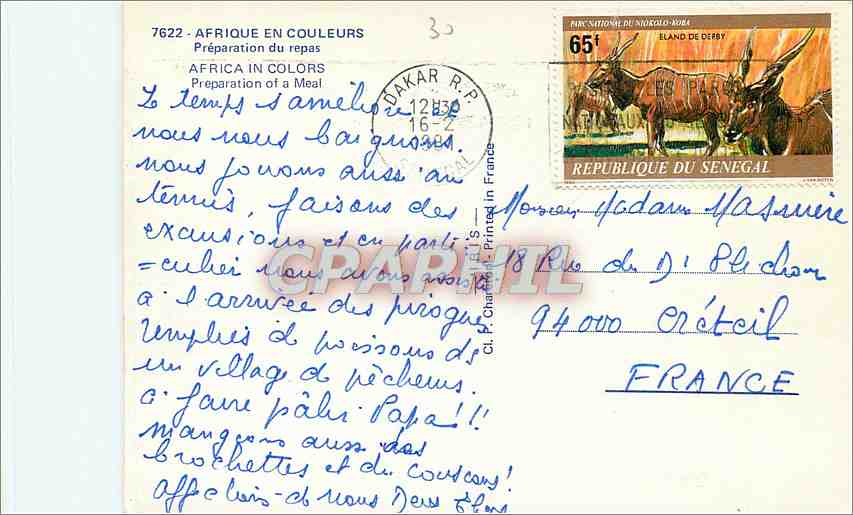 7622 - AFRIQUE EN COULEURS
Préparation du repas
AFRICA IN COLORS
Preparation of a Meal
30
PARC NATIONAL DU NIOKOLO-KOBA
65f
ELAND DE DERBY
REPUBLIQUE DU SENEGAL
DAKAR R.P.
12H30
16-2
SENEGAL
Le temps s'améliore et
nous nous baignons.
nous jouons aussi au
tennis, faisons des
excursions et en parti-
=culier nous avons assisté
à l'arrivée des pirogues
remplies de poissons ds
un village de pêcheurs.
à faire pâlir Papa!!!
mangeons aussi des
brochettes et du couscous!
Affections de nous Deux
Cl. P. Chareton - Printed in France
PARIS
Monsieur Madame
18 Rue du Dr Plichon
94000 Créteil
FRANCE
CPAPHIL